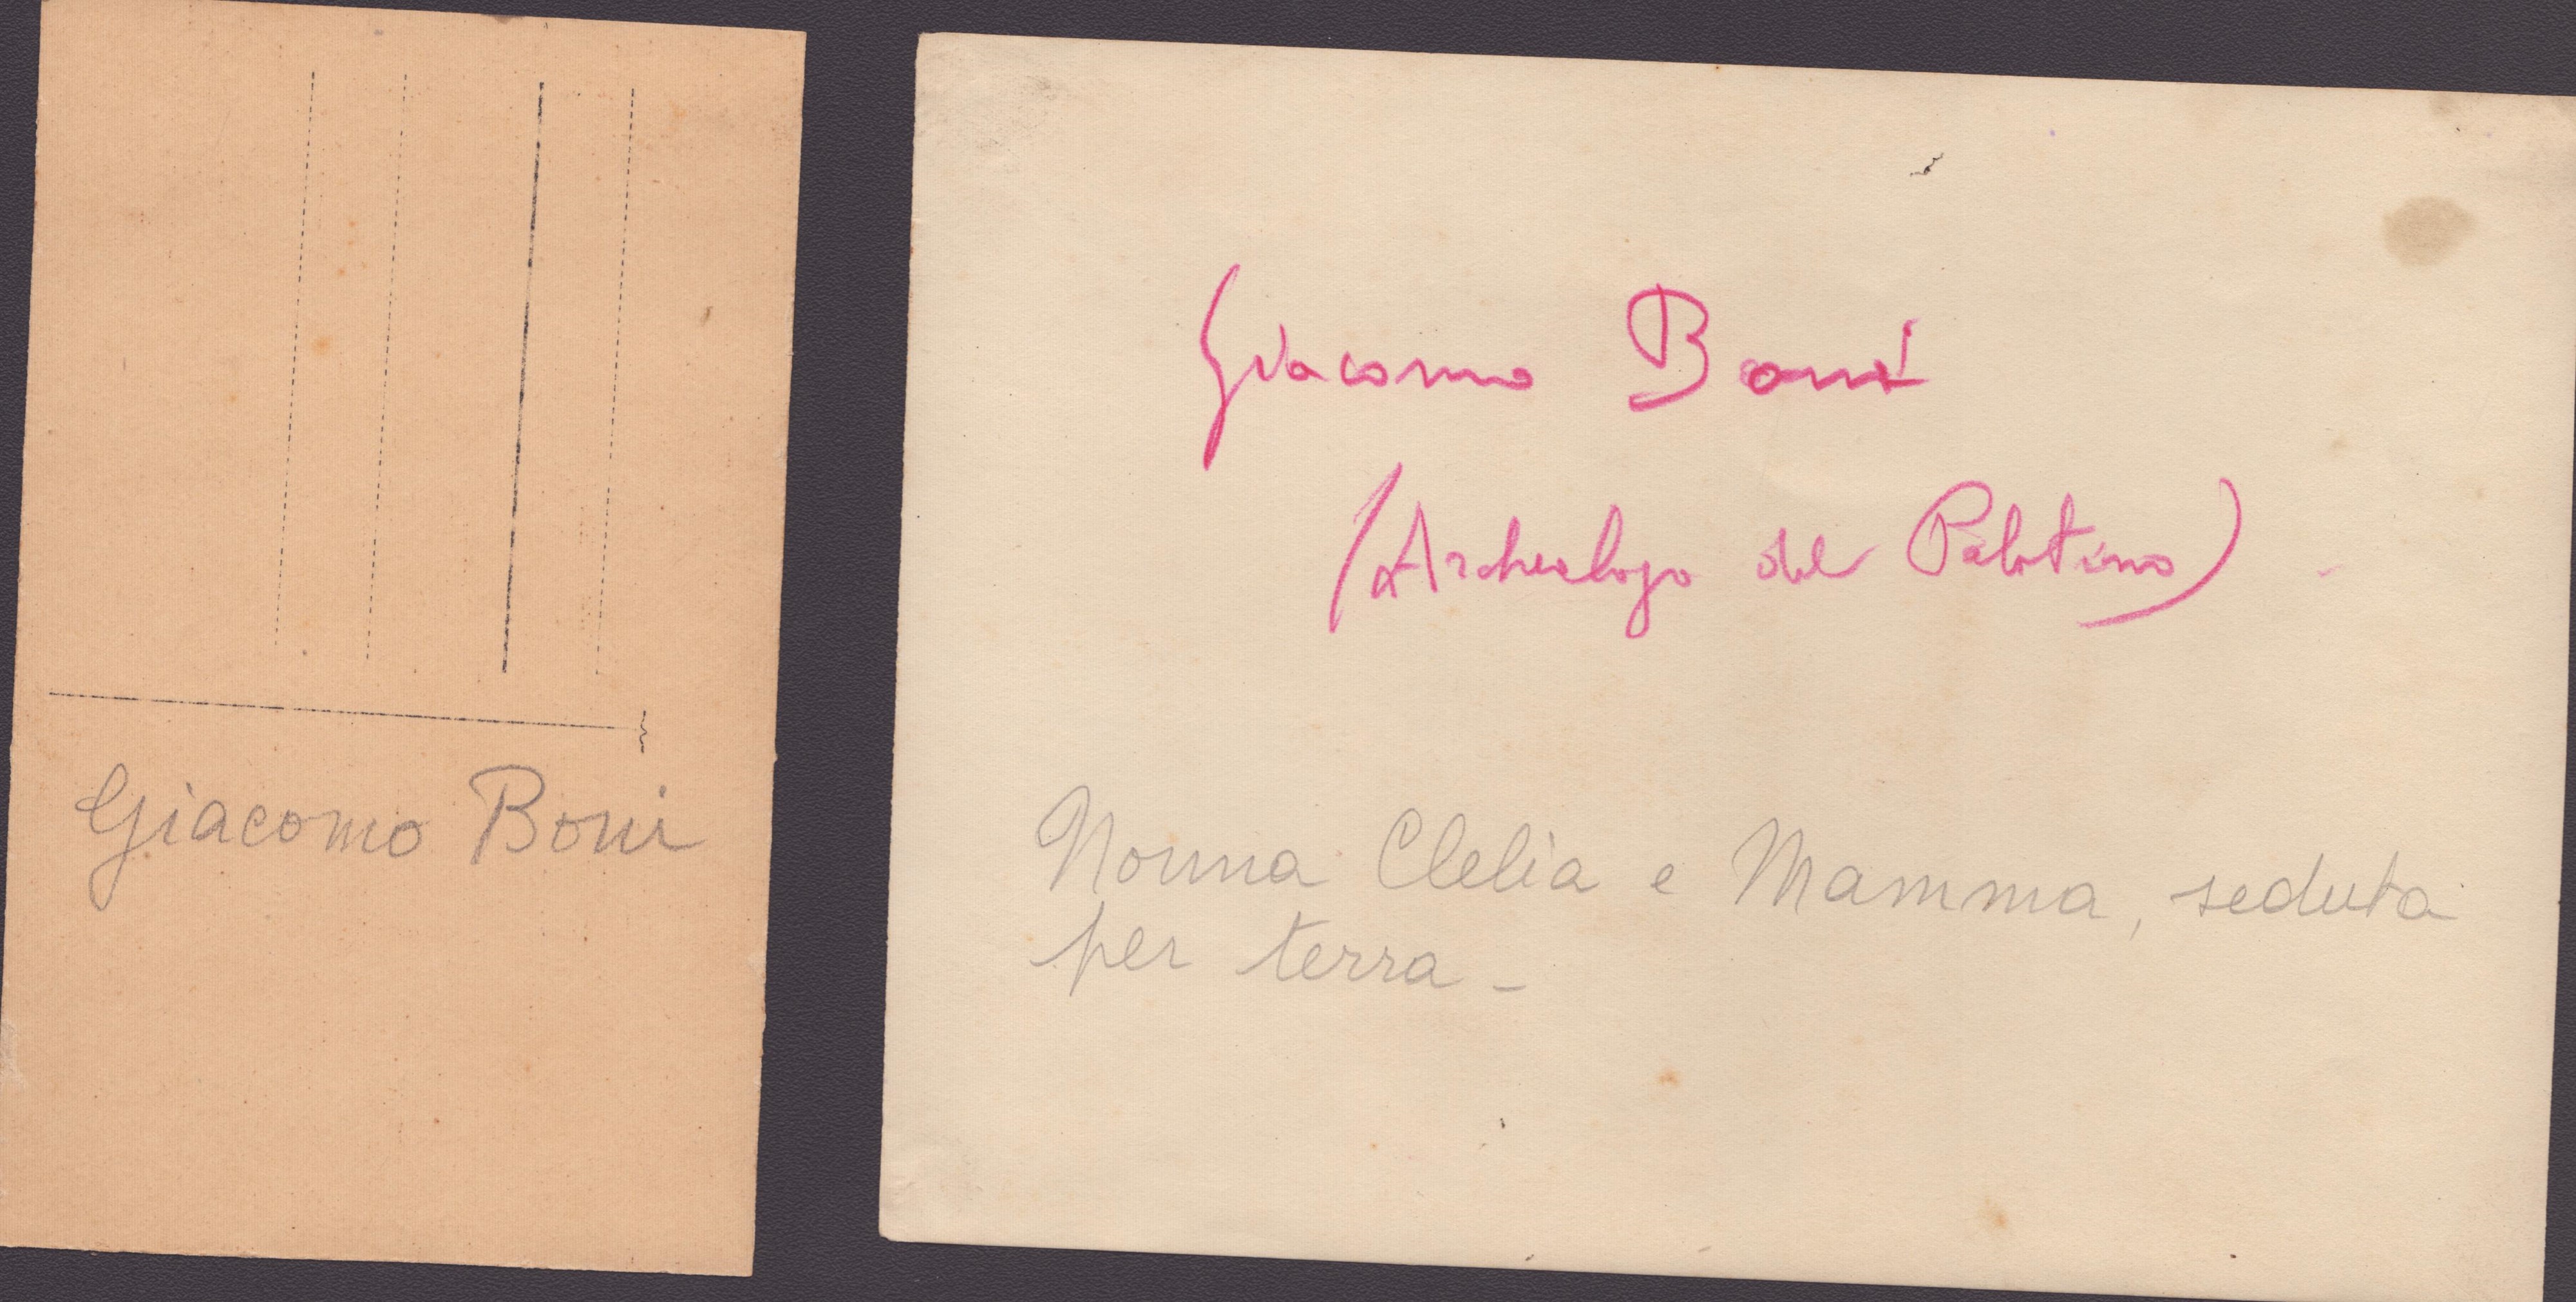 Giacomo Boni
Giacomo Boni
(Archeologo del Palatino) -
Nonna Clelia e Mamma, seduta
per terra -